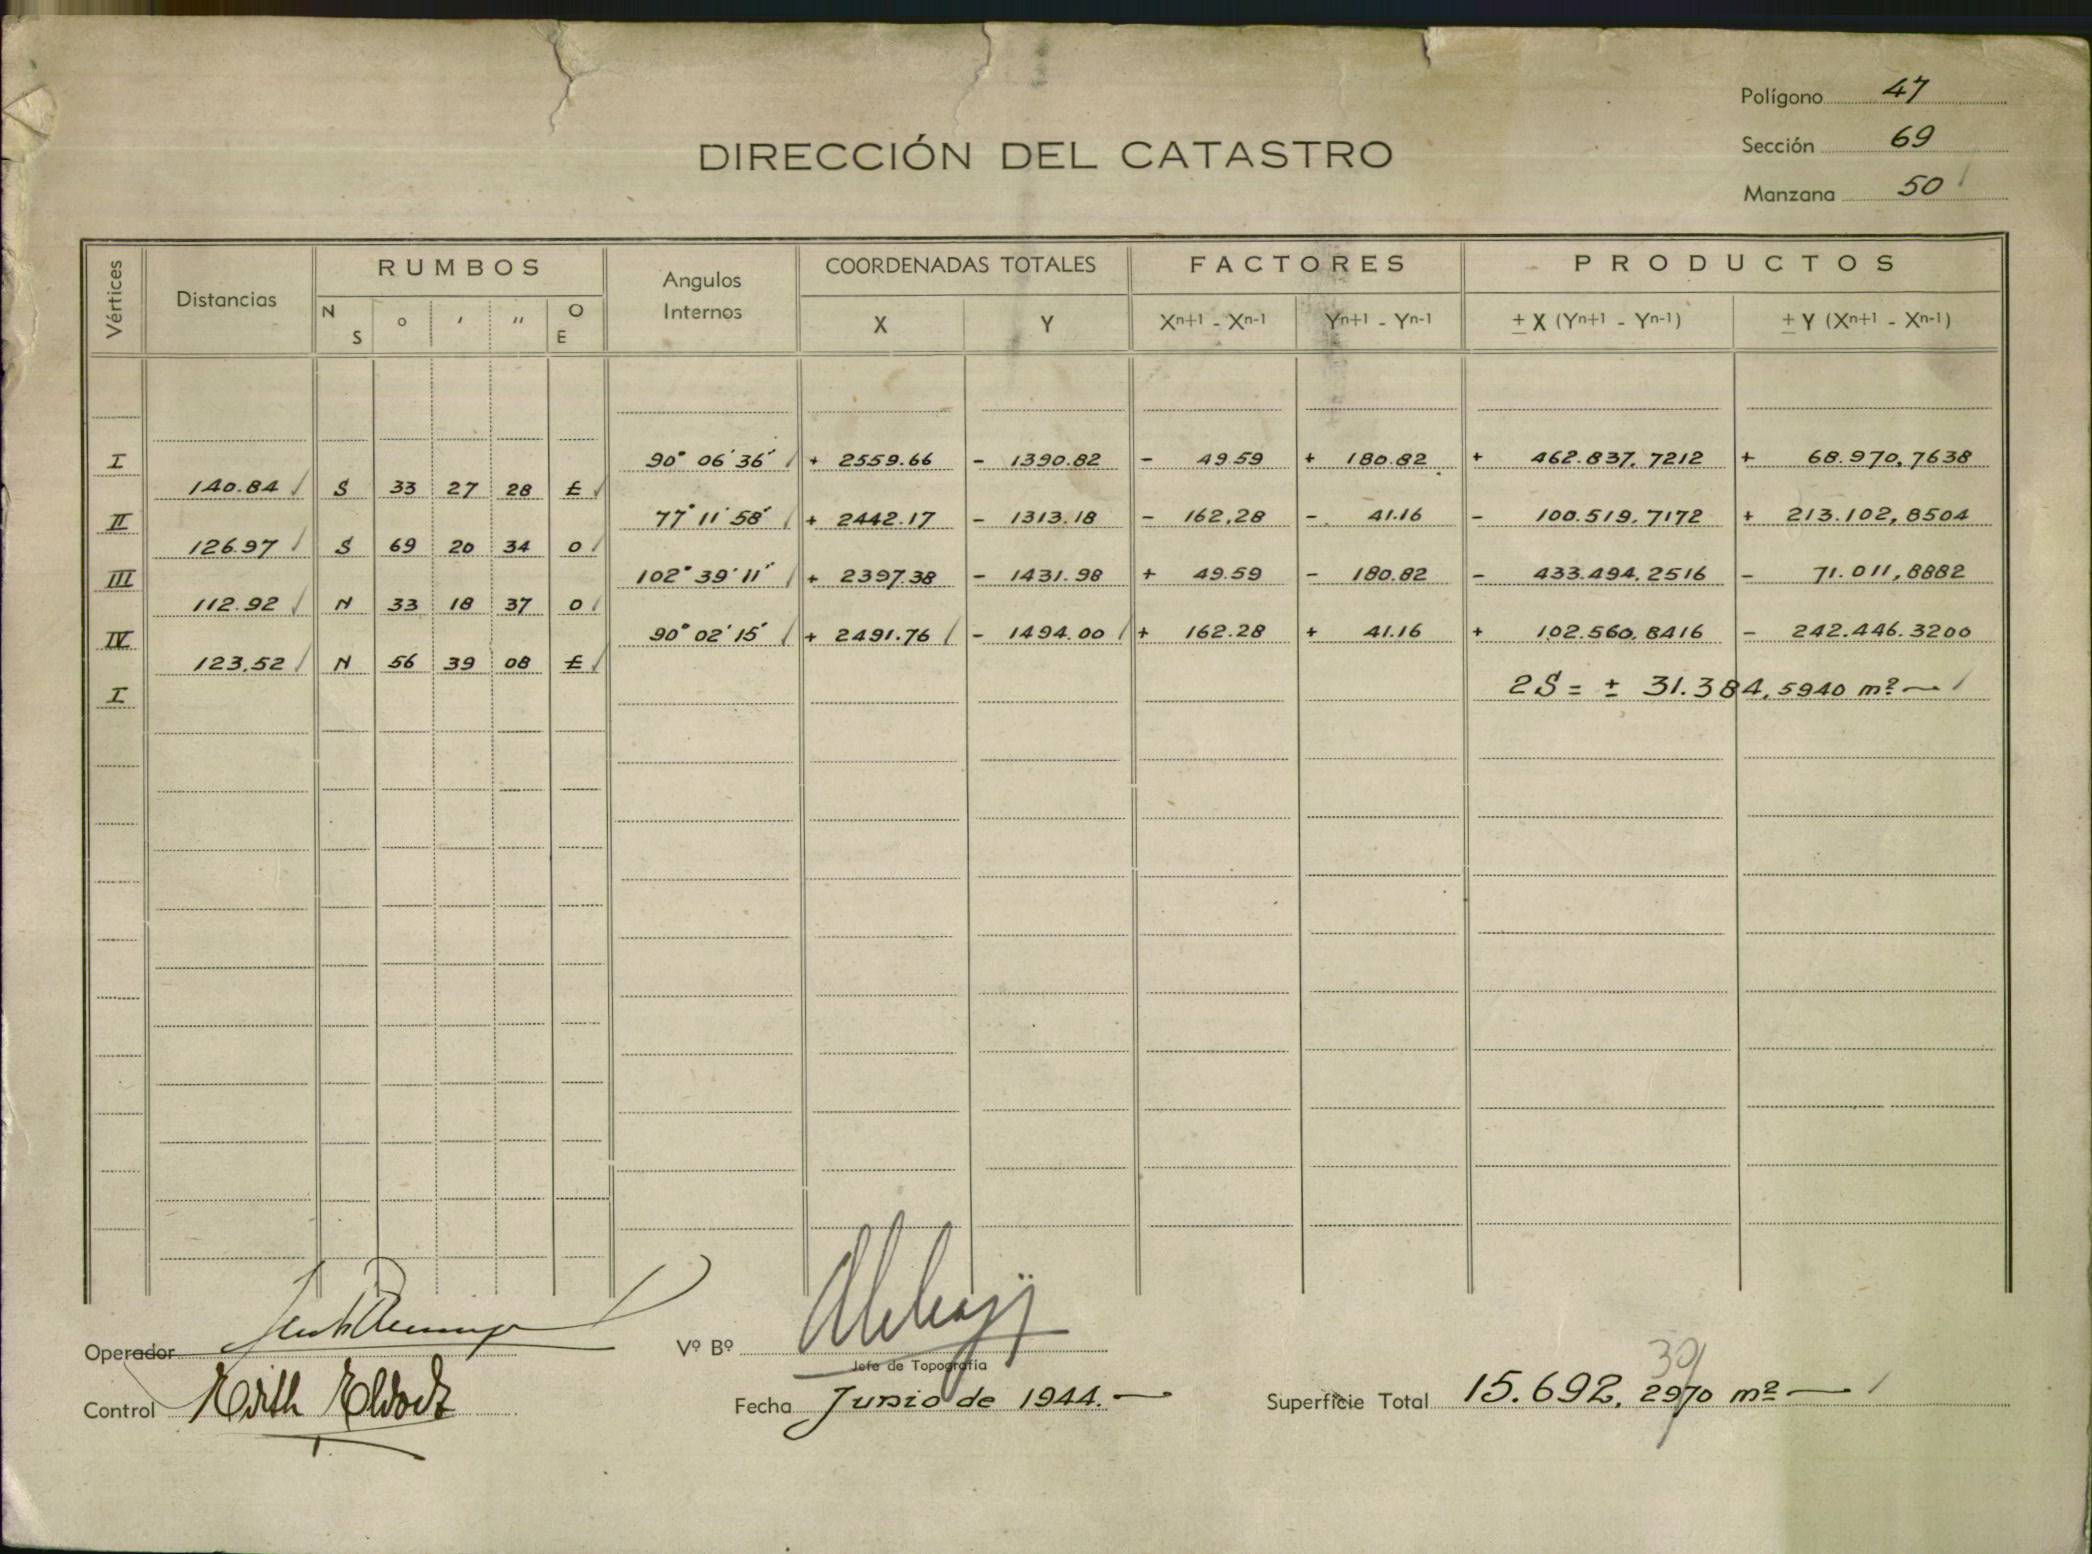 Polígono 47
DIRECCIÓN DEL CATASTRO
Sección 69
Manzana 50
Vértices Distancias RUMBOS Angulos Internos COORDENADAS TOTALES FACTORES PRODUCTOS
N S o ' '' O E X Y Xn+1 - Xn-1 Yn+1 - Yn-1 ± X (Yn+1 - Yn-1) ± Y (Xn+1 - Xn-1)
I 90° 06' 36" + 2559.66 - 1390.82 - 49.59 + 180.82 + 462.837,7212 + 68.970,7638
140.84 S 33 27 28 E
II 77° 11' 58" + 2442.17 - 1313.18 - 162,28 - 41.16 - 100.519,7172 + 213.102,8504
126.97 S 69 20 34 O
III 102° 39' 11" + 2397.38 - 1431.98 + 49.59 - 180.82 - 433.494,2516 - 71.011,8882
112.92 N 33 18 37 O
IV 90° 02' 15" + 2491.76 - 1494.00 + 162.28 + 41.16 + 102.560,8416 - 242.446.3200
123.52 N 56 39 08 E
I 2S = ± 31.384,5940 m²
Operador
Vº Bº
Jefe de Topografía
Control Edith
Fecha Junio de 1944.
30
Superficie Total 15.692,2970 m²